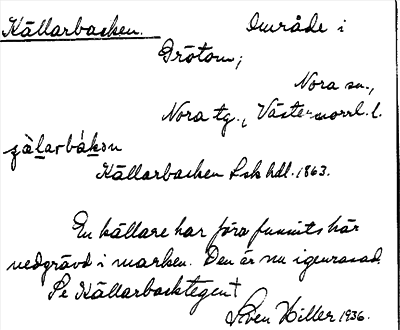 Källarbacken. Område i
Drötom;
Nora sn.,
Nora tg., Västernorrl. l.
Källarbacken Lsk hdl. 1863.
En källare har förr funnits här
nedgrävd i marken. Den är nu igenrasad.
Se Källarbackstegen†
Sven Hiller 1936.